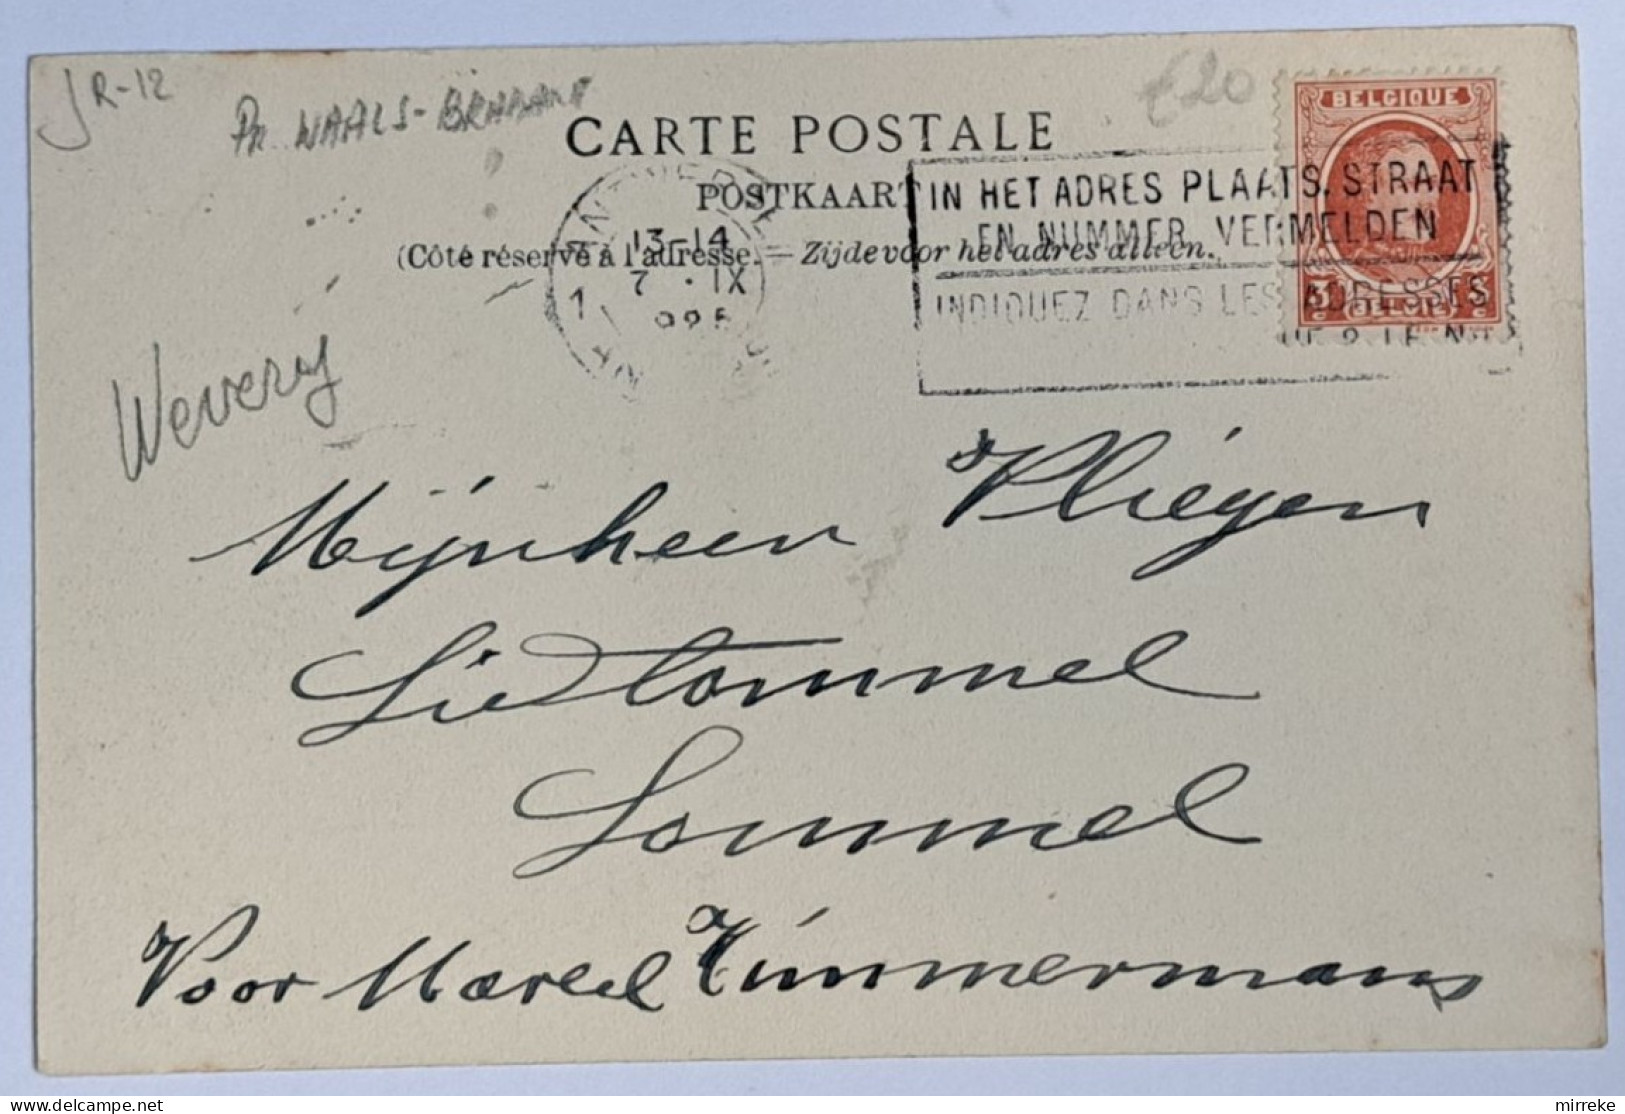 R-12
Pr. WAALS-BRABANT
€20
BELGIQUE
CARTE POSTALE
POSTKAART
(Côté réservé à l'adresse. — Zijde voor het adres alleen.
ANTWERPEN
13-14
7 . IX
1925
1
IN HET ADRES PLAATS, STRAAT
EN NUMMER VERMELDEN
INDIQUEZ DANS LES ADRESSES
3 c BELGIË c
Weverij
Mijnheer Vliegen
Lidtommel
Lommel
Voor Marcel Timmermans
mirreke